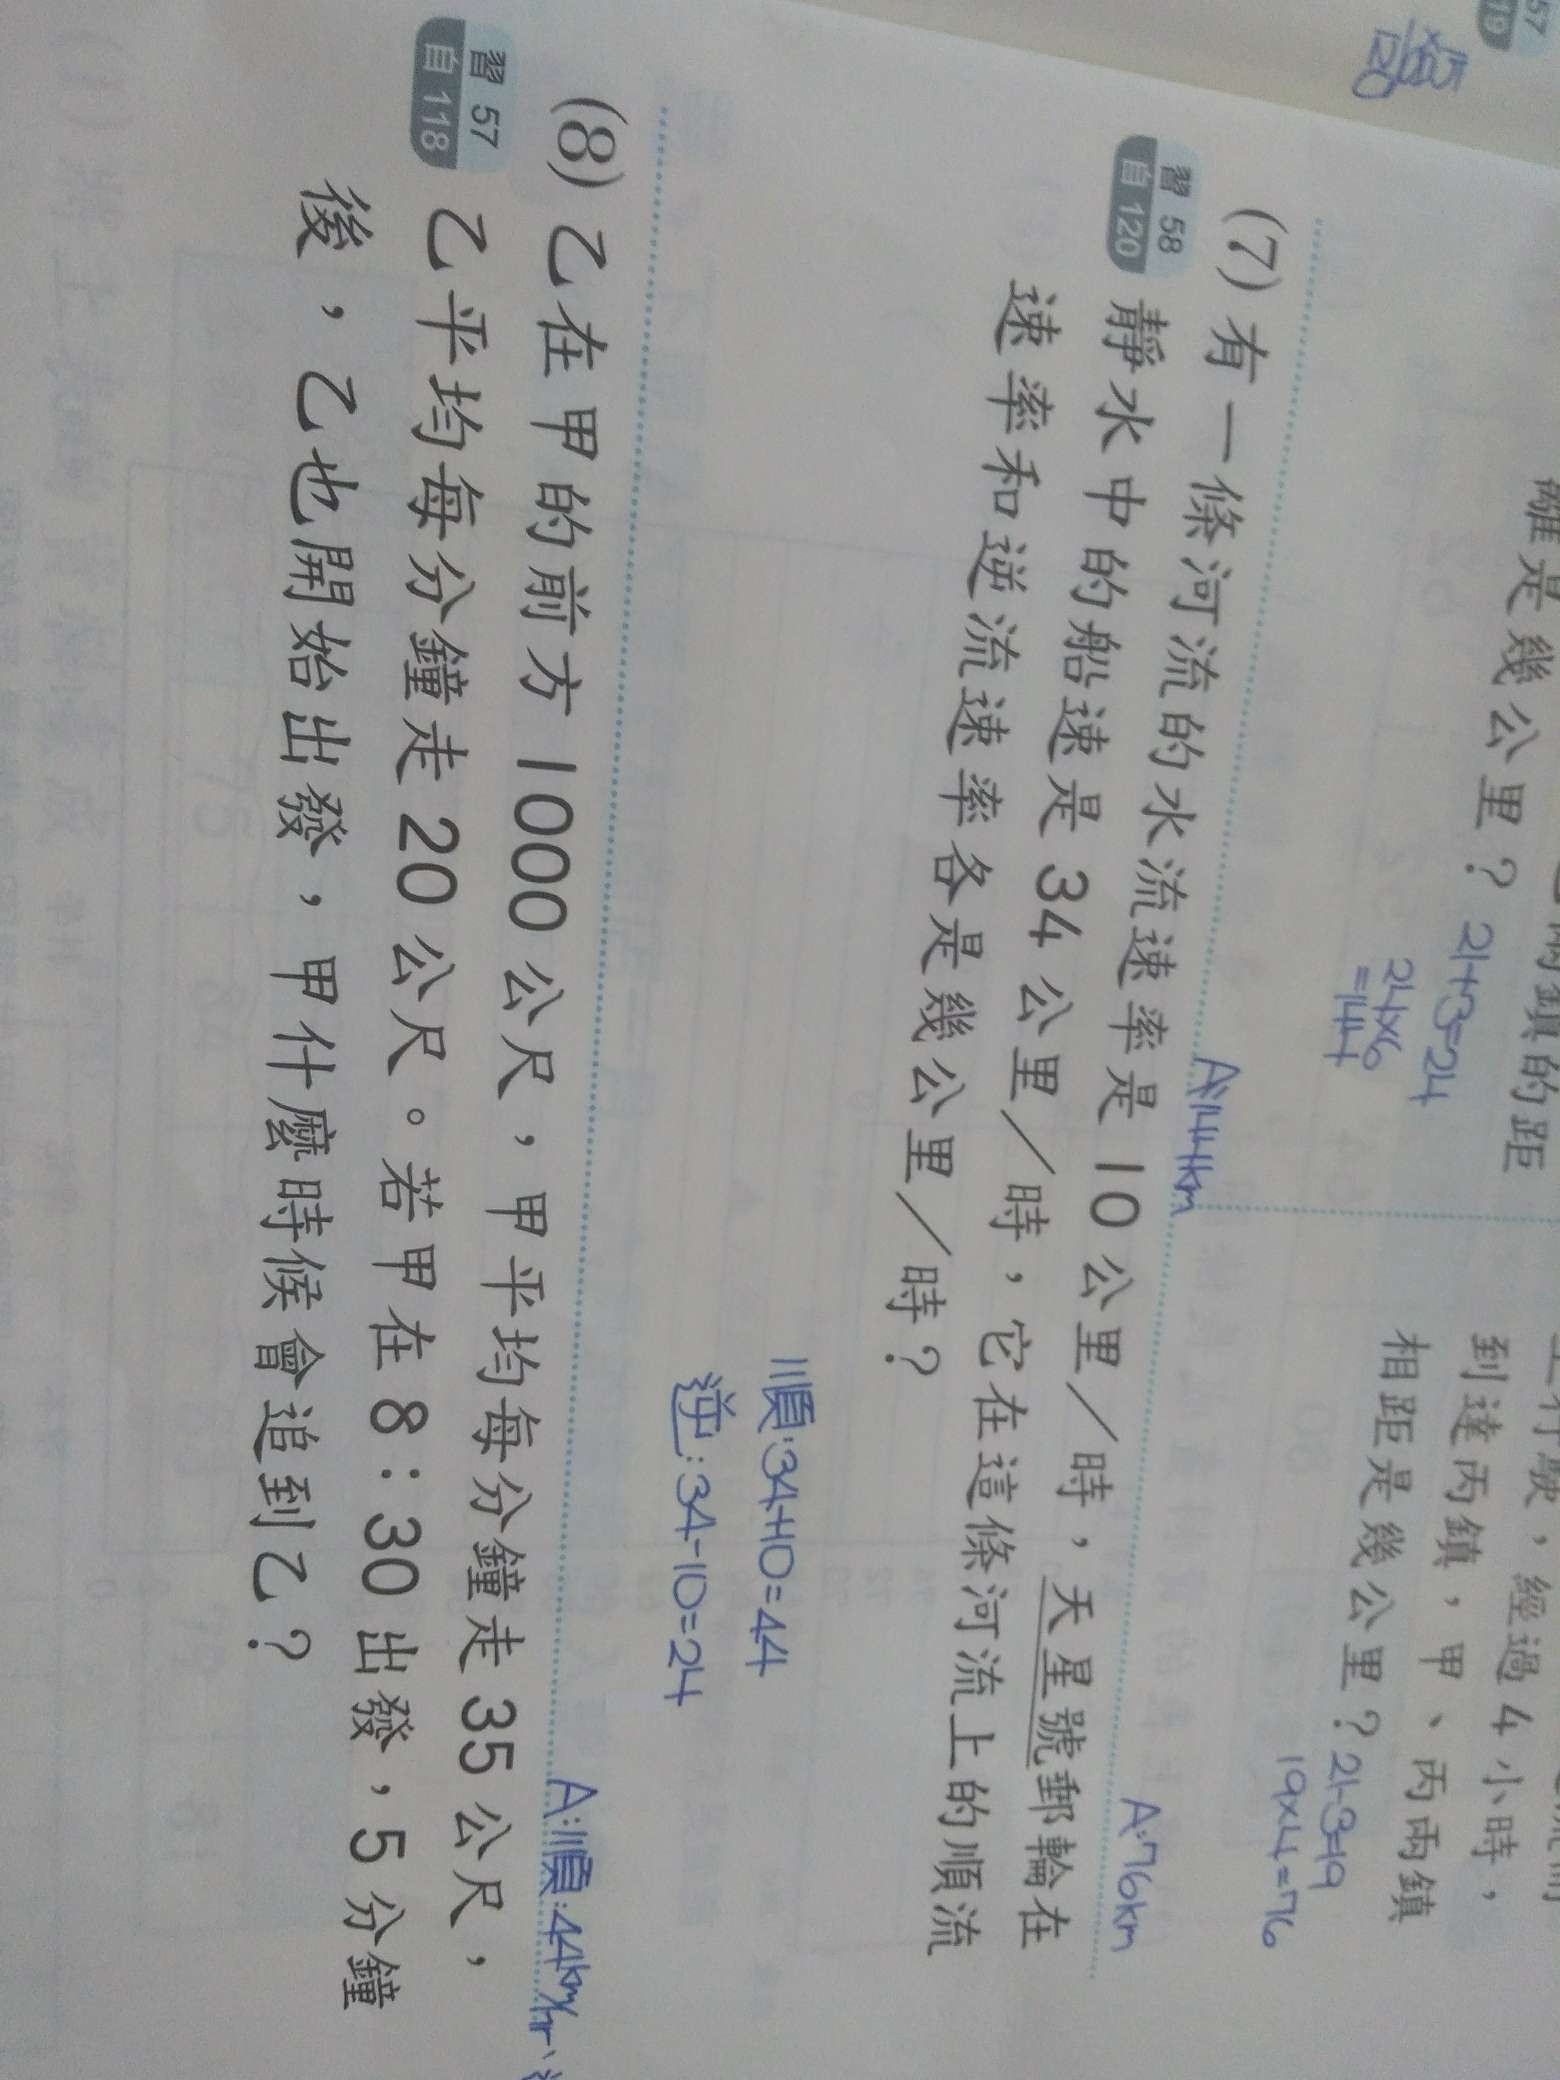 57
離是幾公里？21+3=24
24×6
=144
A:144km
到達丙鎮，甲、丙兩鎮
相距是幾公里？21-3=19
19×4=76
A:76km
(7)有一條河流的水流速率是10公里／時，天星號郵輪在
習58
自120
靜水中的船速是34公里／時，它在這條河流上的順流
速率和逆流速率各是幾公里／時？
順:34+10=44
逆:34-10=24
A:順:44km/hr、
(8)乙在甲的前方1000公尺，甲平均每分鐘走35公尺，
習57
自118
乙平均每分鐘走20公尺。若甲在8：30出發，5分鐘
後，乙也開始出發，甲什麼時候會追到乙？